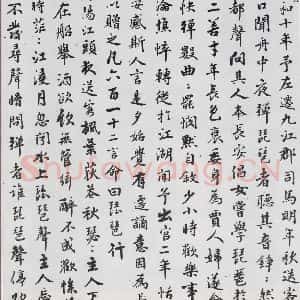 和十年予左遷九江郡司馬明年秋送客
口聞舟中夜彈琵琶者聽其音錚然
都聲問其人本長安女嘗學琵琶於
二善才年長色衰委身為賈人婦遂
快彈數曲罷憫默自敘少小時歡樂事
淪憔悴轉徙於江湖間予出官二年恬
安感斯人言是夕始覺有遷謫意因為長
以贈之凡六百一十二言命曰琵琶行
陽江頭夜送客楓葉荻花秋瑟主人下
在船舉酒欲飲無管絃醉不成歡慘
時茫江浸月忽聞水上琵琶聲主人
不發尋聲暗問彈者誰琵琶聲停欲
Shufawang.CN